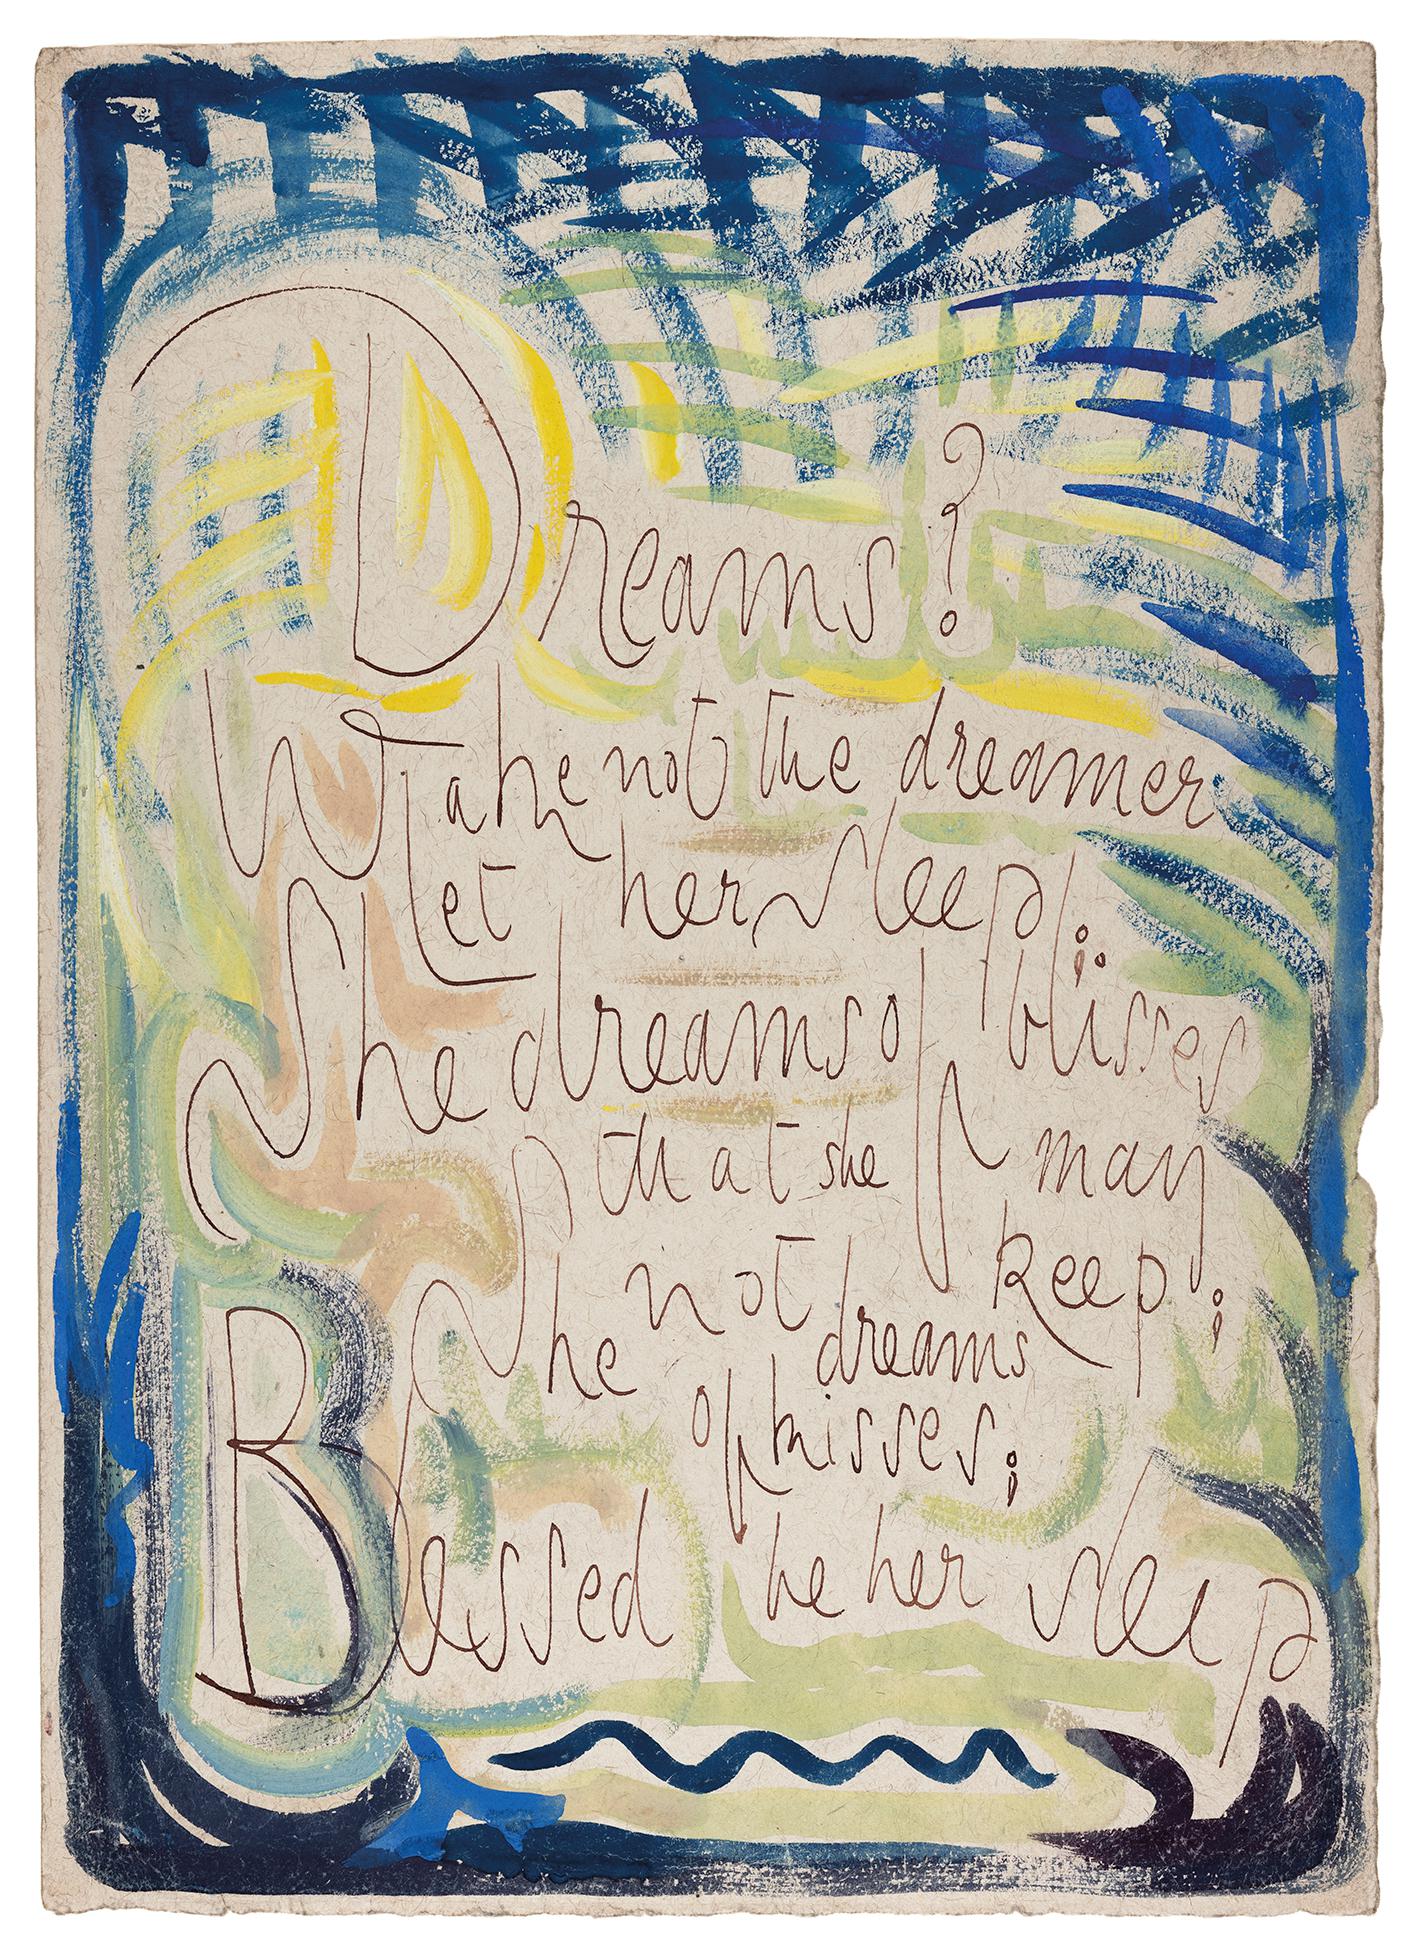 Dreams?
Wake not the dreamer
Let her sleep;
She dreams of blisses
that she may
not keep;
She dreams
of kisses;
Blessed be her sleep